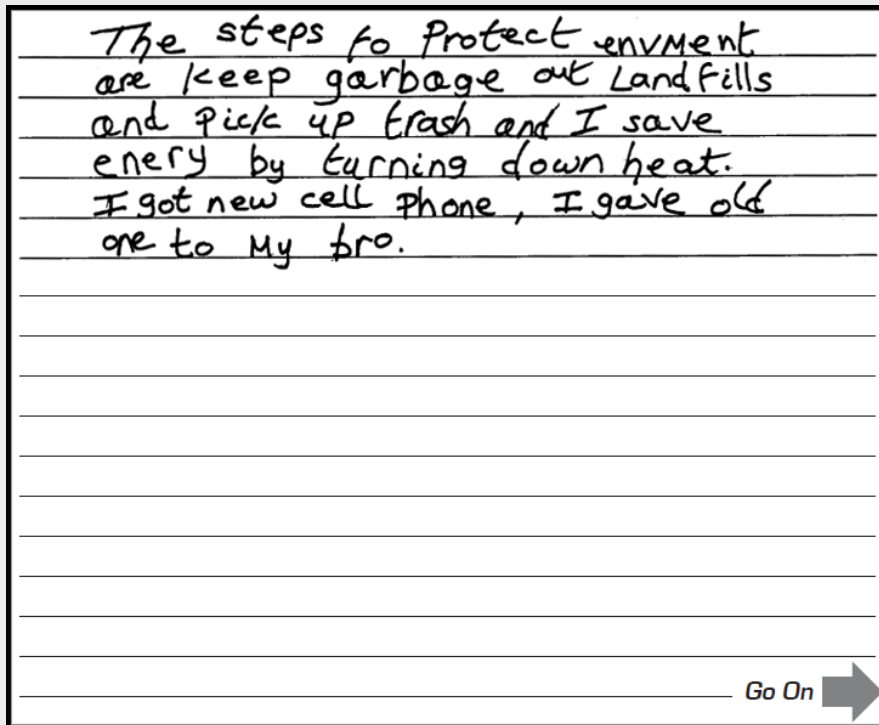 The steps to Protect envMent
are keep garbage out Landfills
and Pick up trash and I save
enery by turning down heat.
I got new cell Phone, I gave old
one to My bro.
Go On